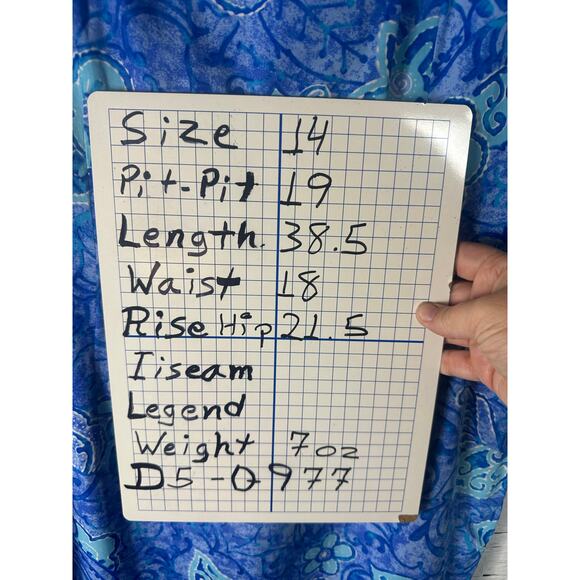 Size 14
Pit-Pit 19
Length. 38.5
Waist 18
Rise Hip 21.5
Iiseam
Legend
Weight 7oz
D5-0977